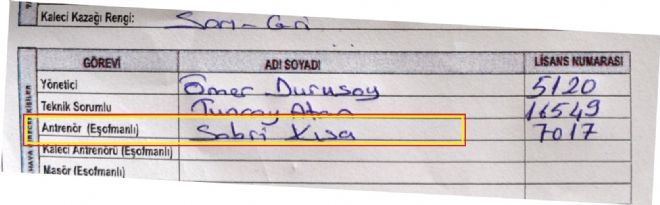 Kaleci Kazağı Rengi: Sarı-Gri
GÖREVİ ADI SOYADI LİSANS NUMARASI
Yönetici Ömer Durusoy 5120
Teknik Sorumlu Tuncay Atan 16549
Antrenör (Eşofmanlı) Sabri Kısa 7017
Kaleci Antrenörü (Eşofmanlı)
Masör (Eşofmanlı)